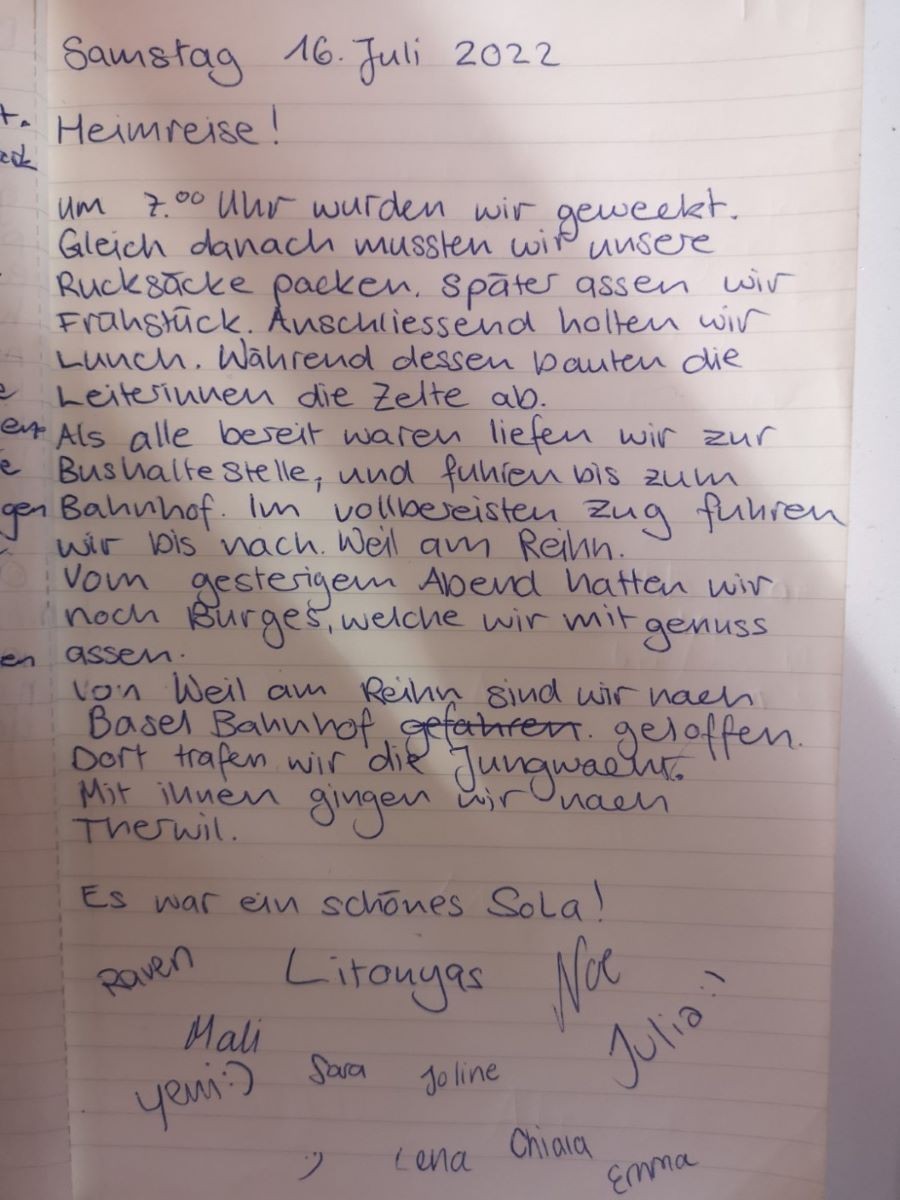 Samstag 16. Juli 2022
Heimreise!
Um 7.⁰⁰ Uhr wurden wir geweckt.
Gleich danach mussten wir unsere
Rucksäcke packen. Später assen wir
Frühstück. Anschliessend holten wir
Lunch. Während dessen bauten die
Leiterinnen die Zelte ab.
Als alle bereit waren liefen wir zur
Bushaltestelle, und fuhren bis zum
Bahnhof. Im vollbereisten Zug fuhren
wir bis nach. Weil am Reihn.
Vom gesterigem Abend hatten wir
noch Burger, welche wir mit genuss
assen.
Von Weil am Reihn sind wir nach
Basel Bahnhof gefahren. geloffen.
Dort trafen wir die Jungwacht.
Mit ihnen gingen wir nach
Therwil.
Es war ein schönes Sola!
Raven Litouyas Noe
Mali Julia :)
Yemi :) Sara Joline
;) Lena Chiara
Emma